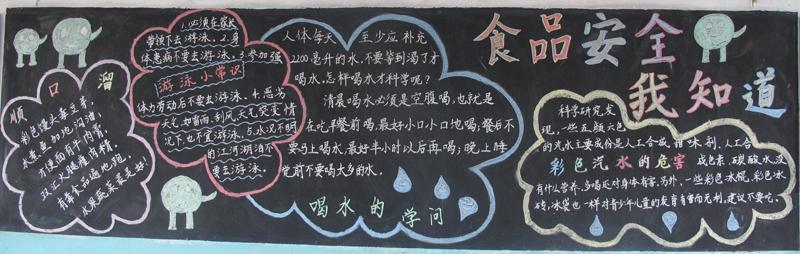 食品安全
我知道
顺口溜
彩色馒头毒豆芽，
水煮鱼加地沟油，
方便面有牛肉膏，
双汇火腿瘦肉精，
有毒食品遍地现，
瓜果蔬菜是最好！
1.必须在家长
带领下去游泳。2.身
体患病不要去游泳。3.参加强
游泳小常识
体力劳动后不要去游泳。4.恶劣
天气，如雷雨，刮风，天气突变情
况下，也不宜游泳。5.水况不明
的江河湖泊不
要去游泳。
人体每天至少应补充
2200毫升的水，不要等到渴了才
喝水，怎样喝水才科学呢？
清晨喝水必须是空腹喝，也就是
在吃早餐前喝，最好小口小口地喝；餐后不
要马上喝水，最好半小时以后再喝；晚上睡
觉前不要喝太多的水。
喝水的学问
科学研究发
现，一些五颜六色
的汽水主要成份是人工合成甜味剂、人工合
彩色汽水的危害
成色素、碳酸水，没
有什么营养，多喝还对身体有害。另外，一些彩色冰棍，彩色冰
砖，冰袋也一样对青少年儿童的发育有害而无利，建议不要吃。